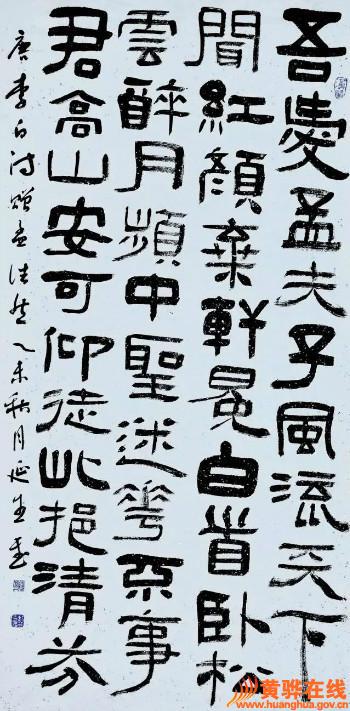 吾愛孟夫子風流天下
聞紅顏棄軒冕白首卧松
雲醉月頻中聖迷華不事
君高山安可仰徒此挹清芬
唐李白诗赠孟浩然乙未秋月延生书
黄骅在线
www.huanghua.gov.cn